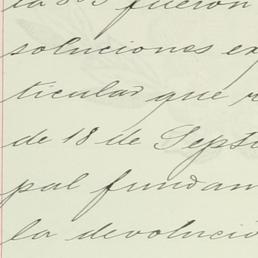 fueron
soluciones ex
ticular que r
de 18 de Septi
pal fundam
la devolució